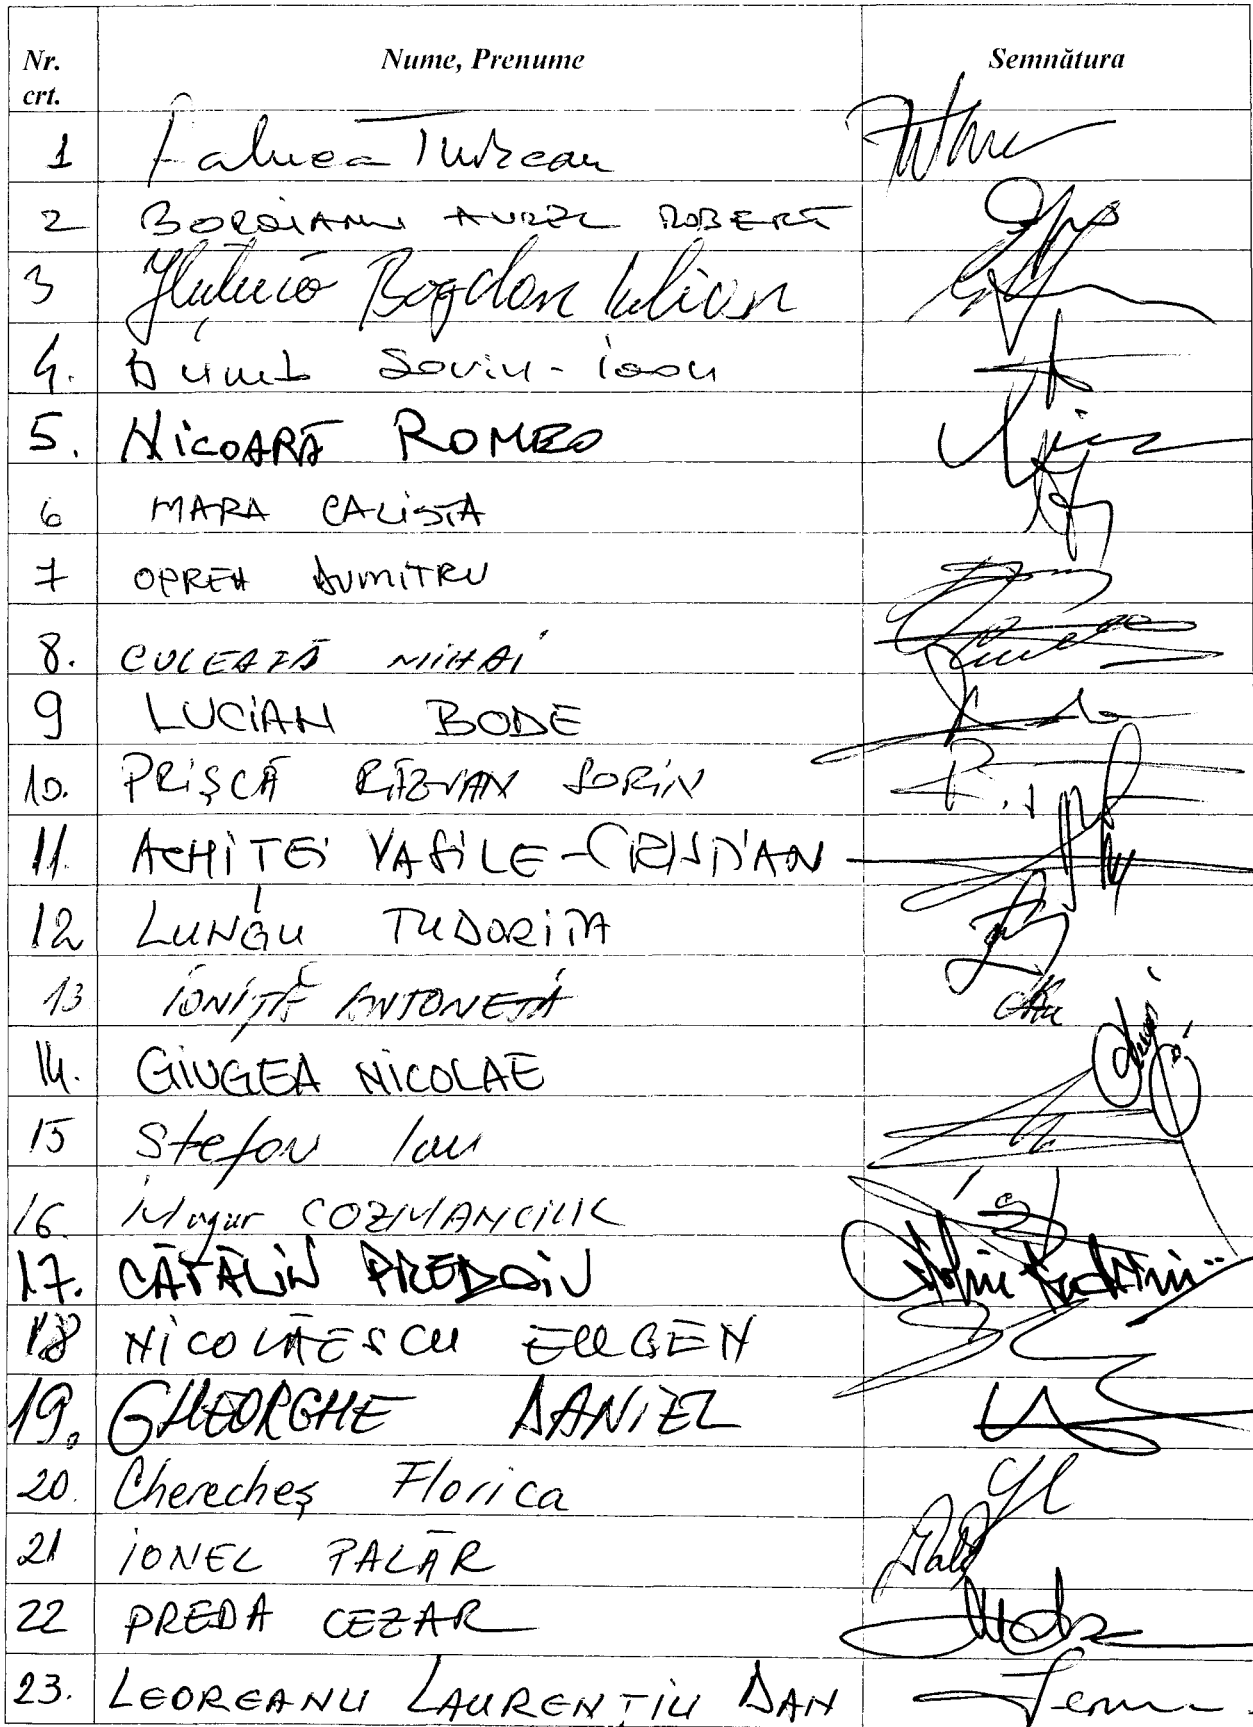 Nr. crt. Nume, Prenume Semnătura
1 Raluca Turcan
2 BOROIANU AUREL ROBERT
3 Huțucă Bogdan Iulian
4. Sorin-Ioan
5. NICOARĂ ROMEO
6 MARA CALISTA
7 OPREA DUMITRU
8. CULEAFĂ MIHAI
9 LUCIAN BODE
10. PRIȘCĂ RĂZVAN SORIN
11. ACHITEI VASILE-CRISTIAN
12 LUNGU TUDORIȚA
13 IONIȚĂ ANTONETA
14. GIUGEA NICOLAE
15 Stefan Ion
16. Mugur COZMANCIUC
17. CĂTĂLIN PREDOIU
18 NICOLĂESCU EUGEN
19. GHEORGHE DANIEL
20. Cherecheș Florica
21 IONEL PALĂR
22 PREDA CEZAR
23. LEOREANU LAURENȚIU DAN